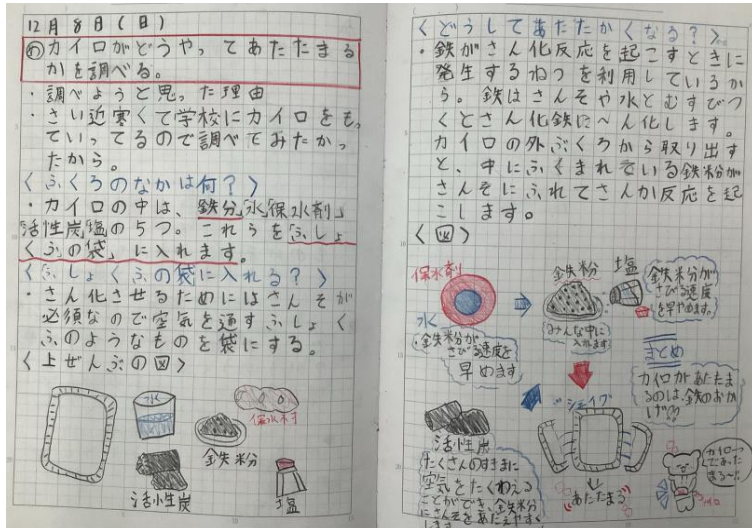 12月8日(日)
めカイロがどうやってあたたまる
かを調べる。
・調べようと思った理由
・さい近寒くて学校にカイロをも
っていってるので調べてみたかっ
たから。
〈ふくろのなかは何?〉
・カイロの中は、鉄分」「水」「保水剤」
「活性炭」「塩の5つ。これらを「ふしょ
くふの袋」に入れます。
〈ふしょくふの袋に入れる?〉
・さん化させるためにはさんそが
必須なので空気を通すふしょく
ふのようなものを袋にする。
〈上ぜんぶの図〉
水
保水材
鉄粉
活性炭
塩
〈どうしてあたたかくなる?〉
・鉄がさん化反応を起こすときに
発生するねつを利用しているか
ら。鉄はさんそや水とむすびつ
くとさん化鉄にへん化します。
カイロの外ぶくろから取り出す
と、中にふくまれている鉄粉が
さんそにふれてさんか反応を起
こします。
〈図〉
保水剤
水
・鉄粉が
さびる速度を
早めます
鉄粉
みんな中に
入れます
塩
鉄粉が
さびる速度
を早めます。
まとめ
カイロがあたたま
るのは、鉄のおか
げ
シェイク
活性炭
たくさんのすきまに
空気をたくわえる
ことができ、鉄粉
にさんそをあたえやすく
します
あたたまる
カイロー
てあった
まる〜